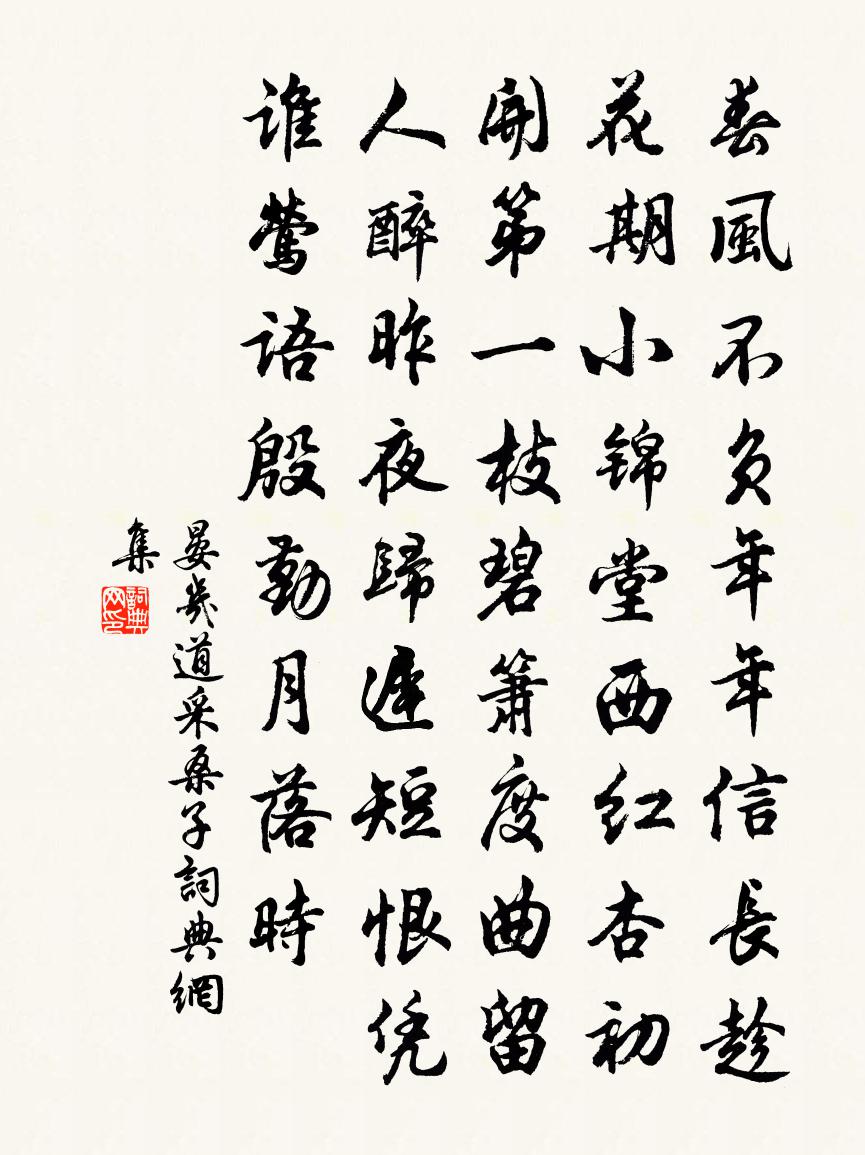 春風不負年年信長趁
花期小锦堂西红杏初
開第一枝碧簫度曲留
人醉昨夜歸遲短恨凭
谁鶯語殷勤月落時
晏幾道采桑子詞典網
集
詞典
网印